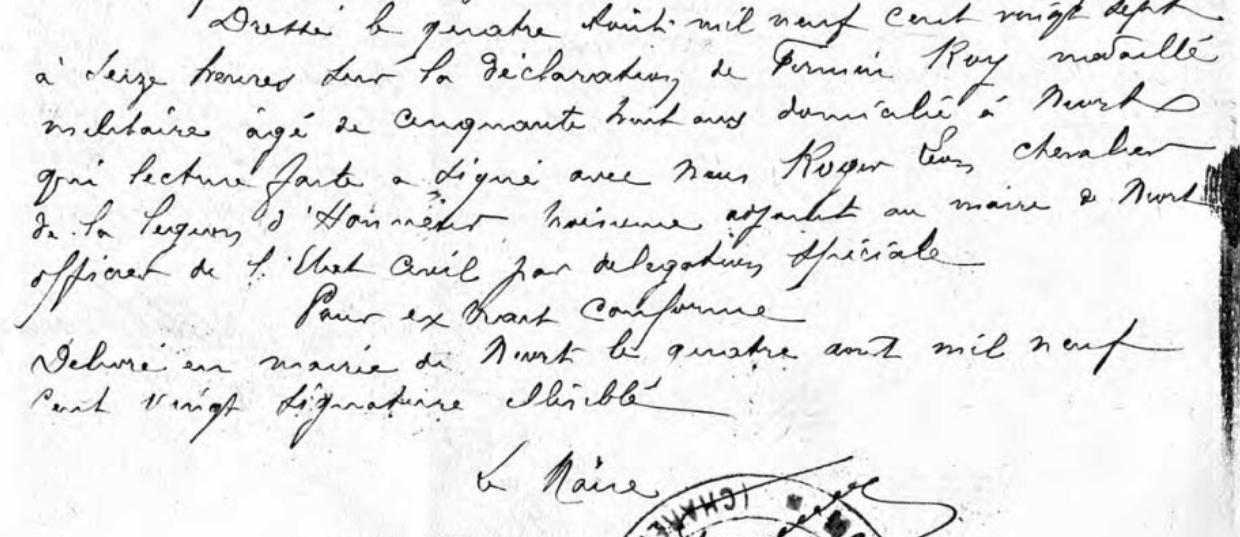 Dressé le quatre Août mil neuf cent vingt sept
à seize heures sur la déclaration de Firmin Roy médaillé
militaire âgé de cinquante huit ans domicilié à Niort
qui lecture faite a signé avec nous Roger Léon chevalier
de la légion d'Honneur troisieme adjoint au maire de Niort
officier de l'Etat Civil par délégation spéciale
Pour extrait conforme
Délivré en mairie de Niort le quatre août mil neuf
cent vingt signature illisible
Le Maire